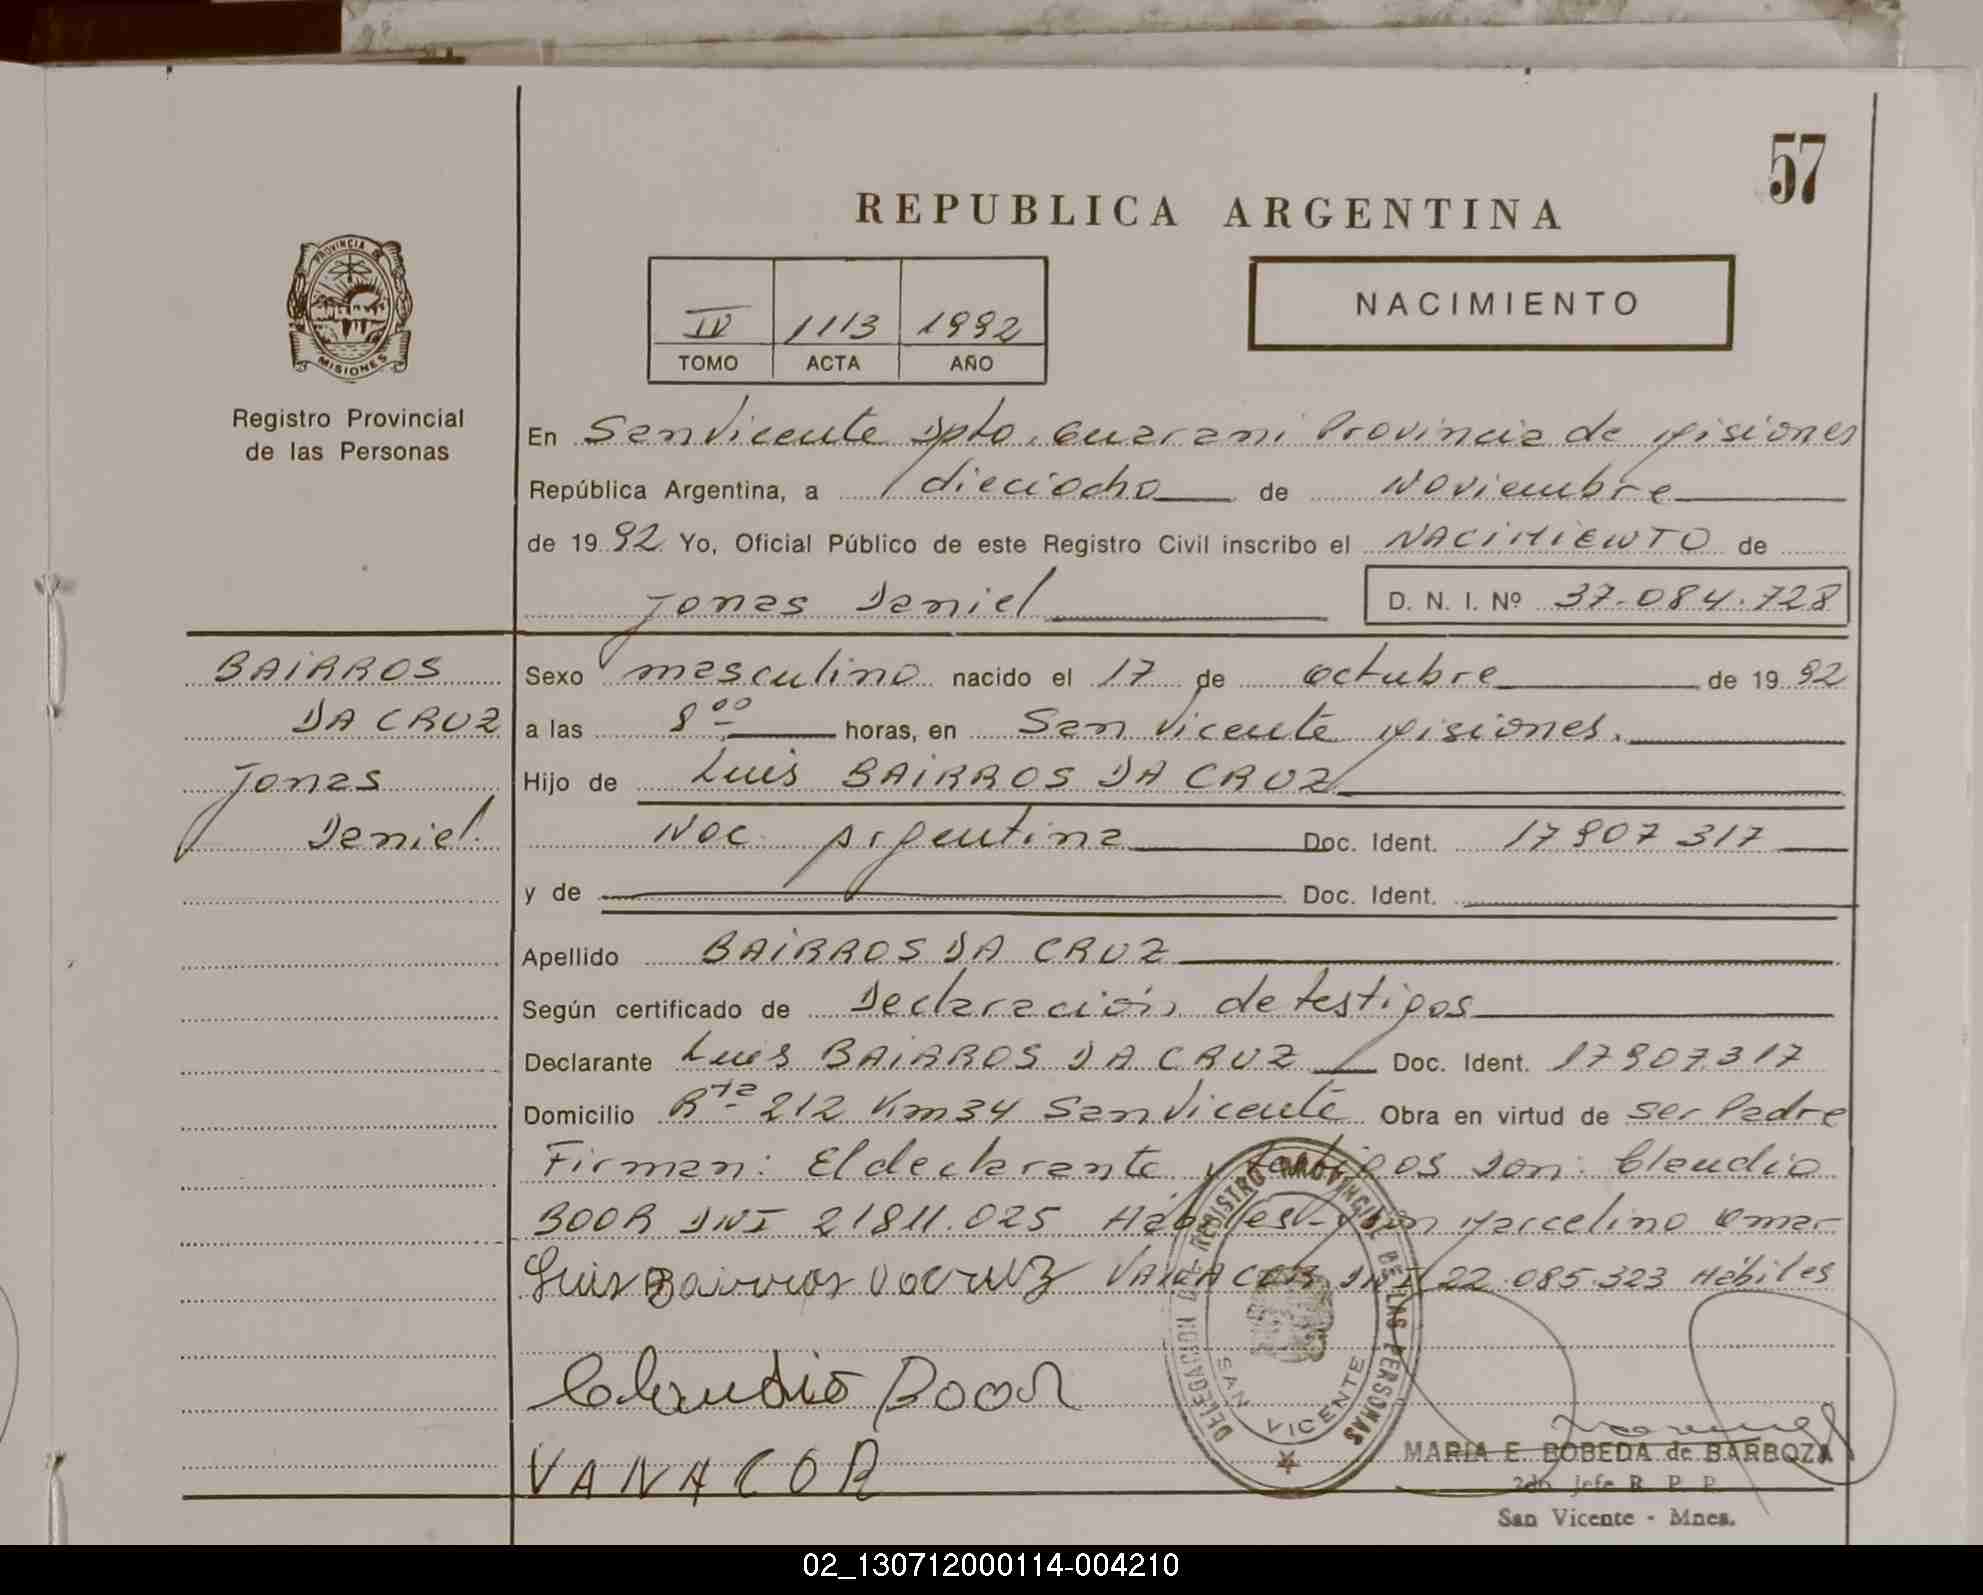 57
REPUBLICA ARGENTINA
PROVINCIA DE
MISIONES
Registro Provincial
de las Personas
IV 1113 1992
TOMO ACTA AÑO
NACIMIENTO
En San Vicente Dpto. Guarani Provincia de Misiones
República Argentina, a dieciocho de Noviembre
de 1992 Yo, Oficial Público de este Registro Civil inscribo el NACIMIENTO de
Jonas Daniel D. N. I. Nº 37.084.728
BAIRROS
DA CRUZ
Jonas
Daniel.
Sexo masculino nacido el 17 de octubre de 1992
a las 8⁰⁰ horas, en San Vicente Misiones.
Hijo de Luis BAIRROS DA CRUZ
Nac. Argentina Doc. Ident. 17907317
y de Doc. Ident.
Apellido BAIRROS DA CRUZ
Según certificado de Declaración de testigos
Declarante Luis BAIRROS DA CRUZ Doc. Ident. 17907317
Domicilio Rta 212 Km 34 San Vicente Obra en virtud de ser Padre
Firman: El declarante y testigos Don: Claudio
BOOR DNI 21811.025 Hábiles-y Don Marcelino Omar
Luis Bairros Dacruz VANACOR DNI 22.085.323 Hábiles
Claudio Boor
VANACOR
DELEGACION DEL REGISTRO PROVINCIAL DE LAS PERSONAS
SAN VICENTE
MARIA E. BOBEDA de BARBOZA
2do Jefe R. P. P.
San Vicente - Mnes.
02_130712000114-004210